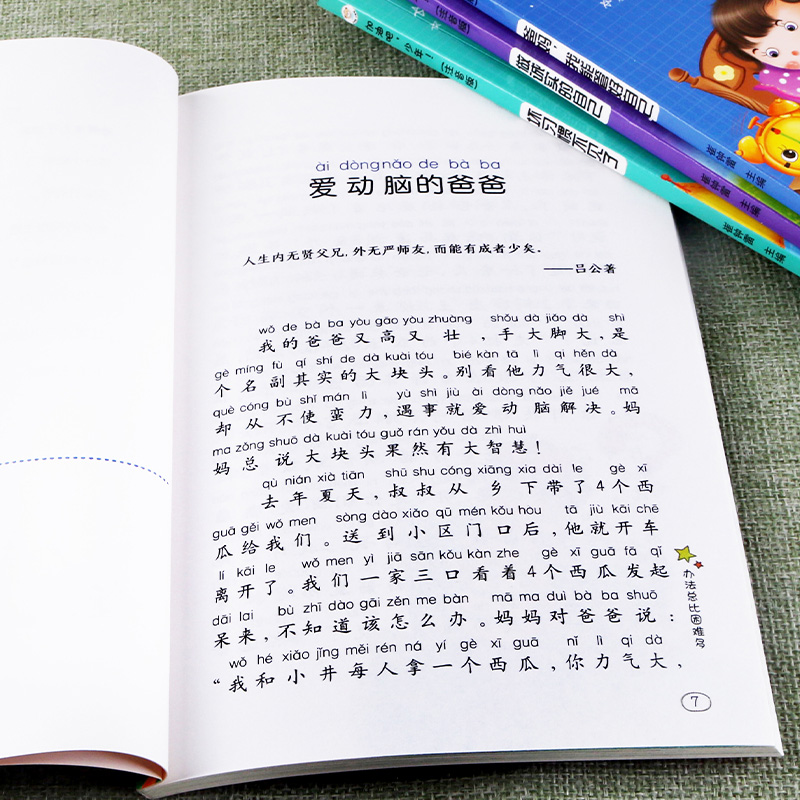 爸妈，我能管好自己
崔钟雷 主编
(注音版)
做诚实的自己
崔钟雷 主编
加油吧，少年！(注音版)
坏习惯不见了
崔钟雷 主编
ài dòng nǎo de bà ba
爱动脑的爸爸
人生内无贤父兄，外无严师友，而能有成者少矣。
——吕公著
wǒ de bà ba yòu gāo yòu zhuàng shǒu dà jiǎo dà shì
我的爸爸又高又壮，手大脚大，是
gè míng fù qí shí de dà kuài tóu bié kàn tā lì qi hěn dà
个名副其实的大块头。别看他力气很大，
què cóng bù shǐ mán lì yù shì jiù ài dòng nǎo jiě jué mā
却从不使蛮力，遇事就爱动脑解决。妈
ma zǒng shuō dà kuài tóu guǒ rán yǒu dà zhì huì
妈总说大块头果然有大智慧！
qù nián xià tiān shū shu cóng xiāng xia dài le gè xī
去年夏天，叔叔从乡下带了4个西
guā gěi wǒ men sòng dào xiǎo qū mén kǒu hòu tā jiù kāi chē
瓜给我们。送到小区门口后，他就开车
lí kāi le wǒ men yì jiā sān kǒu kàn zhe gè xī guā fā qǐ
离开了。我们一家三口看着4个西瓜发起
dāi lai bù zhī dào gāi zěn me bàn mā ma duì bà ba shuō
呆来，不知道该怎么办。妈妈对爸爸说：
wǒ hé xiǎo jǐng měi rén ná yí gè xī guā nǐ lì qi dà
“我和小井每人拿一个西瓜，你力气大，
办法总比困难多
7